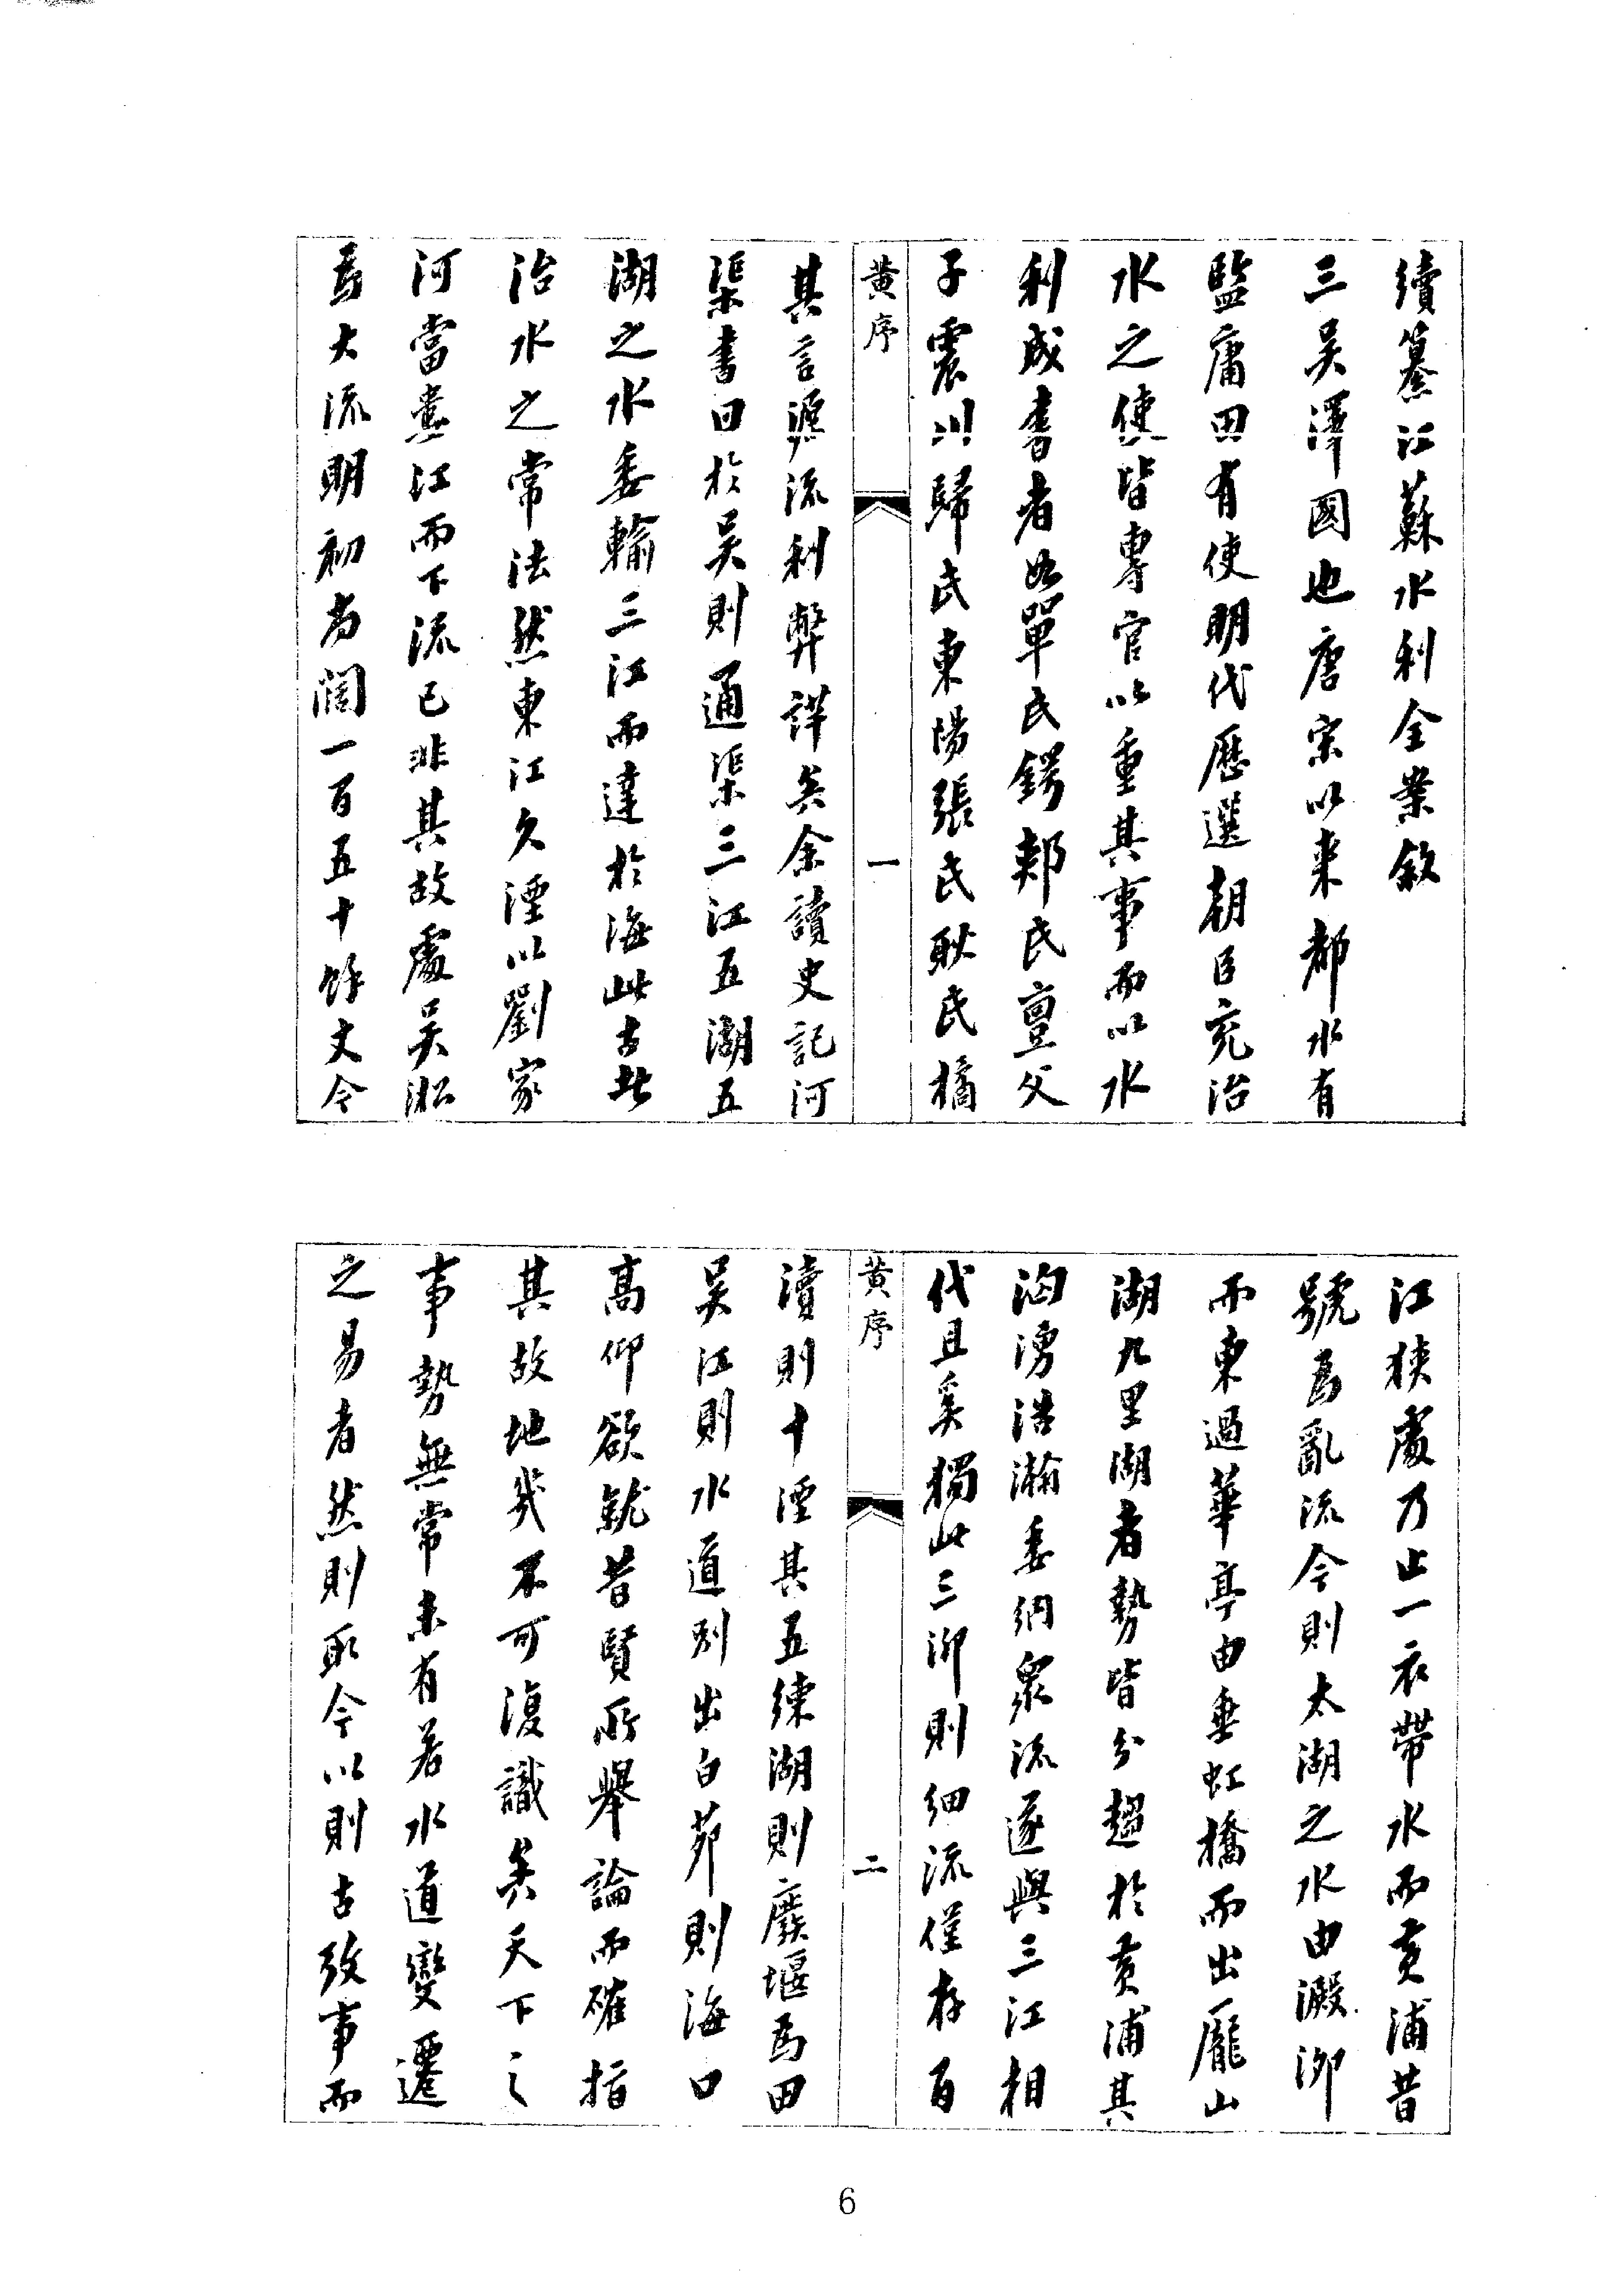 續纂江蘇水利全案敘
三吳澤國也唐宋以來都水有
監庸田有使明代歷選朝臣充治
水之使皆專官以重其事而以水
利成書者如單氏鍔郟氏亶父
子震川歸氏東場張氏耿氏橘
黃序
一
其言源流利弊詳矣余讀史記河
渠書曰於吳則通渠三江五湖五
湖之水委輸三江而達於海此古昔
治水之常法然東江久湮以劉家
河當婁江而下流已非其故處吳淞
爲大流明初尚闊一百五十餘丈今
江狹處乃止一衣帶水而黃浦昔
號爲亂流今則太湖之水由澱泖
而東過華亭由垂虹橋而出龐山
湖九里湖者勢皆分趨於黃浦其
洶湧浩瀚委納眾流遂與三江相
代且奚獨此三泖則細流僅存百
黃序
二
瀆則十湮其五練湖則廢堰爲田
吳江則水道別出白茆則海口
高仰欲就昔賢所舉論而確指
其故地幾不可復識矣天下之
事勢無常未有若水道變遷
之易者然則取今以則古攷事而
6